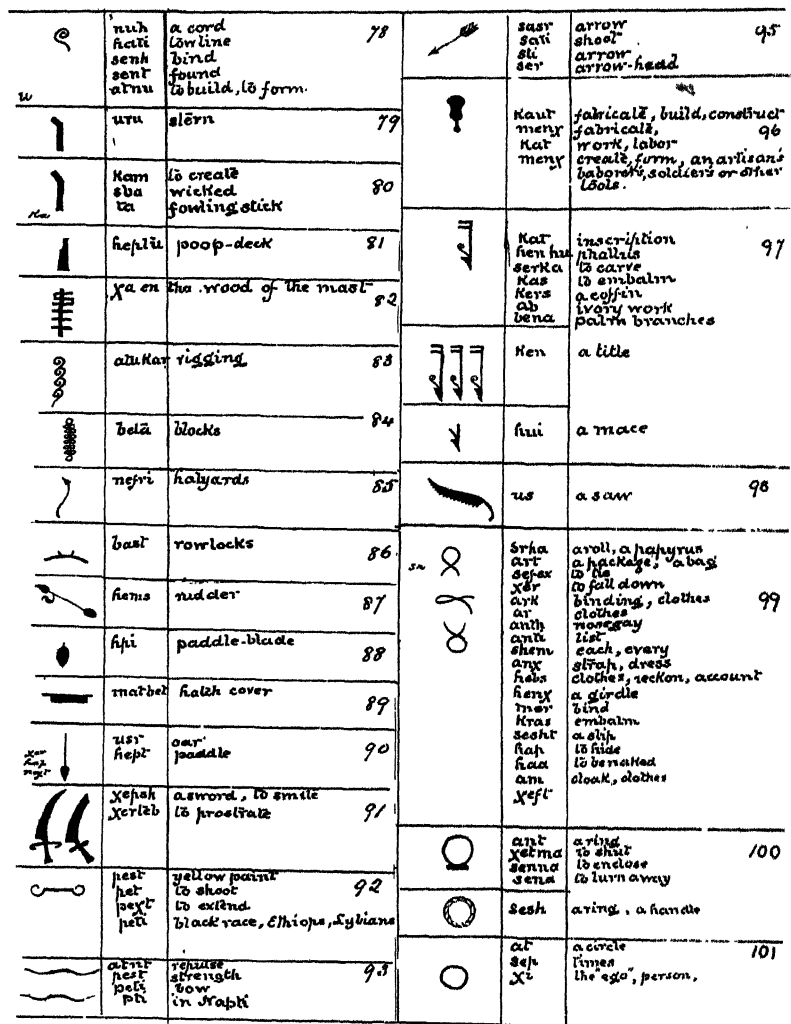 nuh a cord 78
hati towline
senh bind
sent found
atnu to build, to form.
u
uru stern 79
Kam to create
sba wicked 80
ta fowling stick
Ka
heptu poop-deck 81
χa en tha wood of the mast 82
atukar rigging 83
bela blocks 84
nefri halyards 85
bast rowlocks 86
hems rudder 87
hpi paddle-blade 88
matbet hatch cover 89
usr oar 90
hept paddle
χepsh a sword, to smite
χerteb to prostrate 91
pest yellow paint
pet to shoot 92
peχt to extend
peti black race, Ethiops, Lybians
atnt repulse 93
pest strength
peti bow
pti in Napti
sasr arrow 95
sati shoot
sti arrow
ser arrow-head
Kaut fabricate, build, construct
menχ fabricate, 96
Kat work, labor
menχ create, form, an artisan's
laborers, soldiers or other
tools.
Kat inscription 97
hen hu phallus
serka to carve
Kas to embalm
Kers a coffin
ab ivory work
bena palm branches
Ken a title
hui a mace
us a saw 98
Srha a roll, a papyrus
art a package, a bag
sefeχ to tie
χer to fall down
ark binding, clothes 99
ar clothes
anth nosegay
anti list
shem each, every
anχ strap, dress
hebs clothes, reckon, account
henχ a girdle
mer bind
Kras embalm
sesht a slip
hap to hide
haa to be naked
am cloak, clothes
χeft
ant a ring
χetma to shut 100
senna to enclose
sena to turn away
sesh a ring, a handle
at a circle 101
sep times
χi the "ego", person,